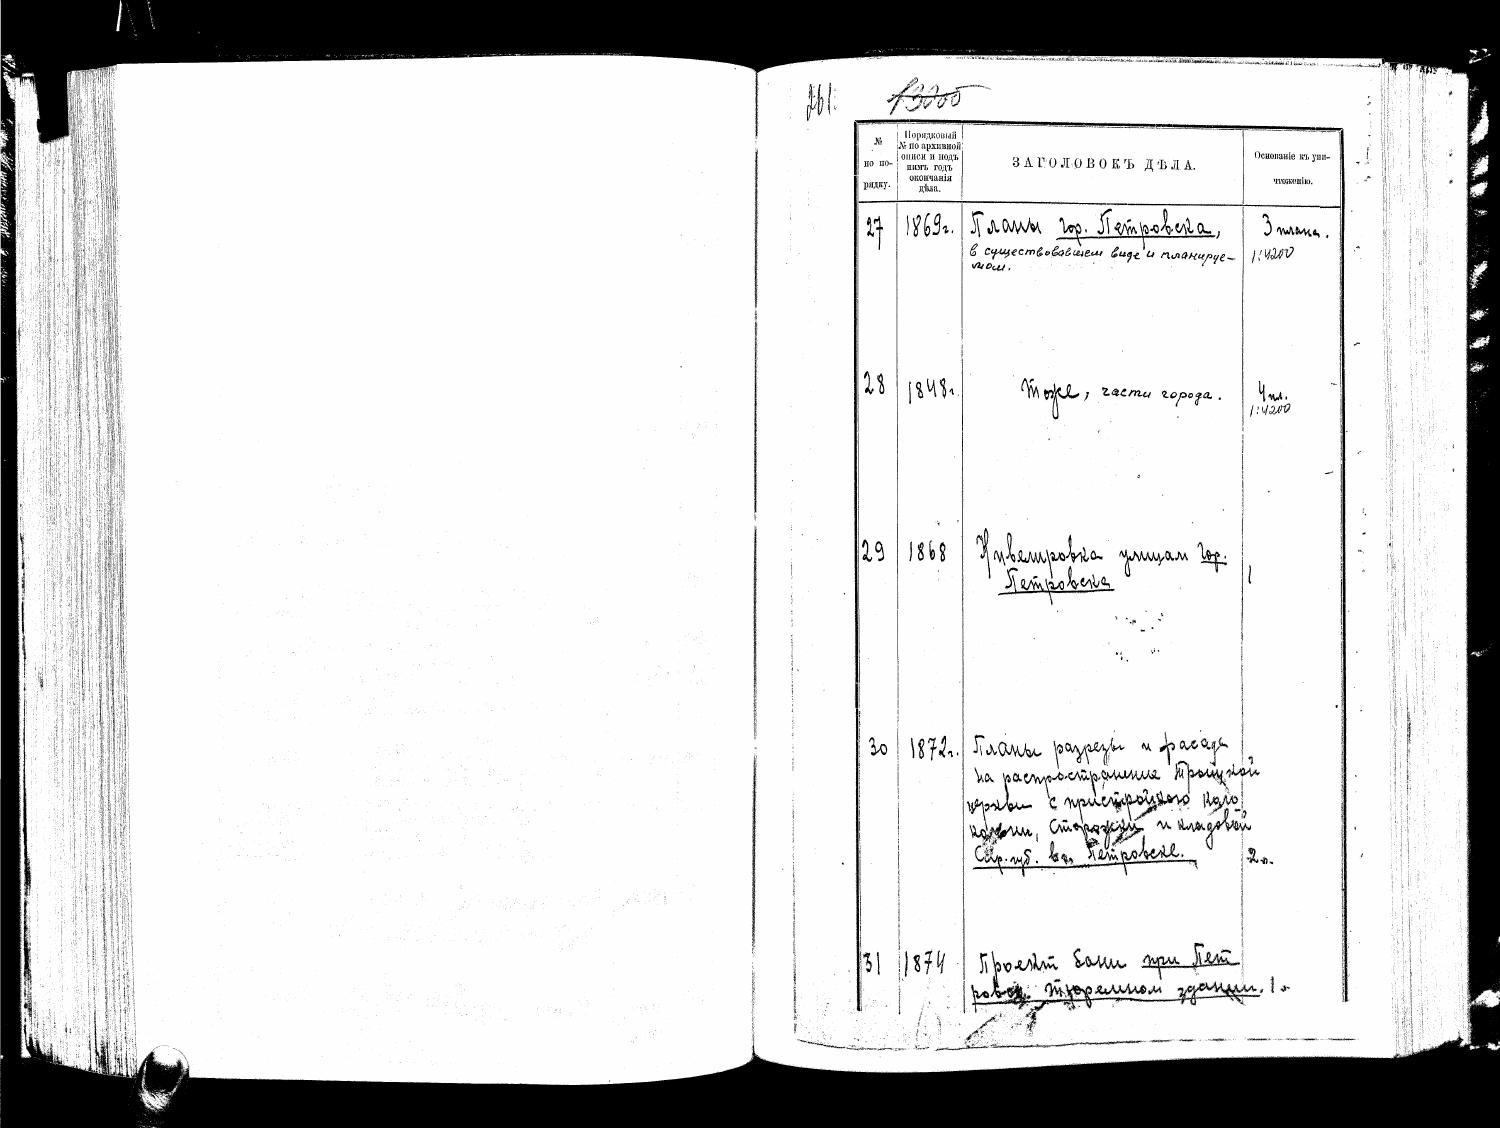 261.
13200
№
по по-
рядку.
Порядковый
№ по архивной
описи и подъ
нимъ годъ
окончанія
дѣла.
ЗАГОЛОВОКЪ ДѢЛА.
Основаніе къ уни-
чтоженію.
27 1869г. Планы гор. Петровска, 3 плана.
в существовавшем виде и планируе- 1:4200
мом.
28 1848г. Тоже, части города. 4 пл.
1:4200
29 1868 Нивелировка улицам гор.
Петровска 1
30 1872г. Планы разрезы и фасады
на распространение Троицкой
церкви с пристройкою коло
кольни, сторожки и кладовой
Сар. губ. в г. Петровске. 2 л.
31 1874 Проект бани при Пет
ровск. тюремном здании. 1 л.